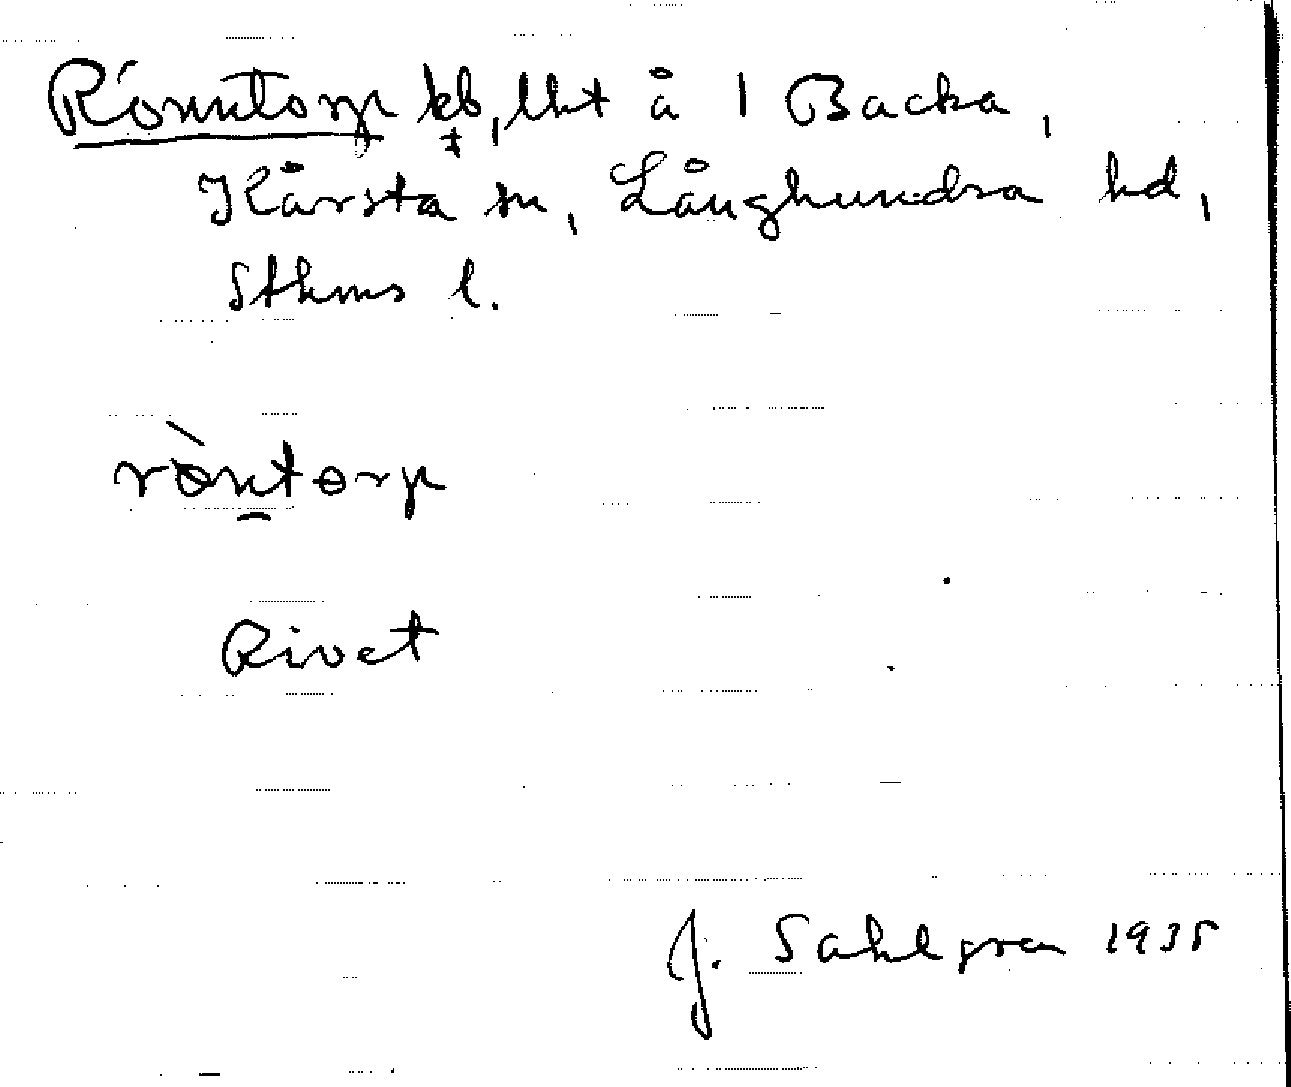 Rönntorp kb, lht å 1 Backa,
‡
Kårsta sn, Långhundra hd,
Sthms l.
rö̀ntɵrp
Rivet
J. Sahlgren 1935